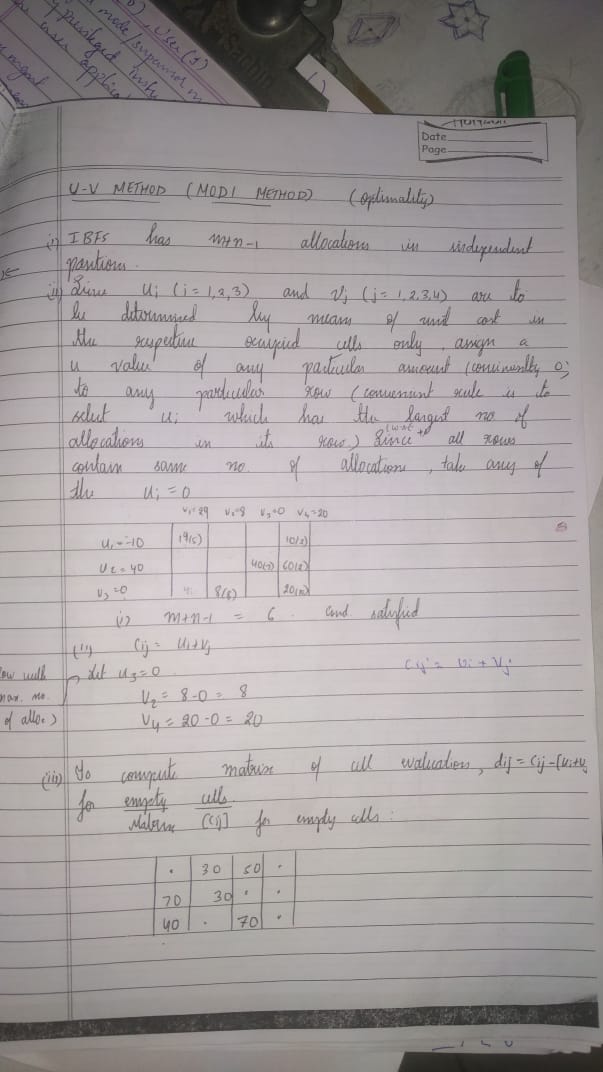 mode/supervisor m
User (1)
applica
Sachin
Date
Page
U-V METHOD (MODI METHOD) (Optimality)
(i) IBFS has m+n-1 allocations in independent
(ii) Since Ui (i = 1,2,3) and Vj (j = 1,2,3,4) are to
be determined by means of unit cost in
the respective occupied cells only, assign a
u value of any particular amount (conveniently 0)
to any particular row (convenient rule is to
select ui which has the largest no of
allocations in its row) Since all rows
contain same no. of allocations, take any of
the Ui = 0
V2=8 V3=0 V4=20
U1=-10 19(5) 10(2)
U2=40 40(7) 60(2)
V3=0 8(8) 20(10)
(i) m+n-1 = 6 and satisfied
(ii) Cij = Ui+Vj
Cij = Ui + Vj
Let u3=0
row with
max. no.
of alloc.)
V2 = 8-0 = 8
V4 = 20-0 = 20
(iii) To compute matrix of cell evaluation, dij = Cij-(Ui+Vj
for empty cells.
[Cij] for empty cells:
. 30 50 .
70 30 . .
40 . 70 .